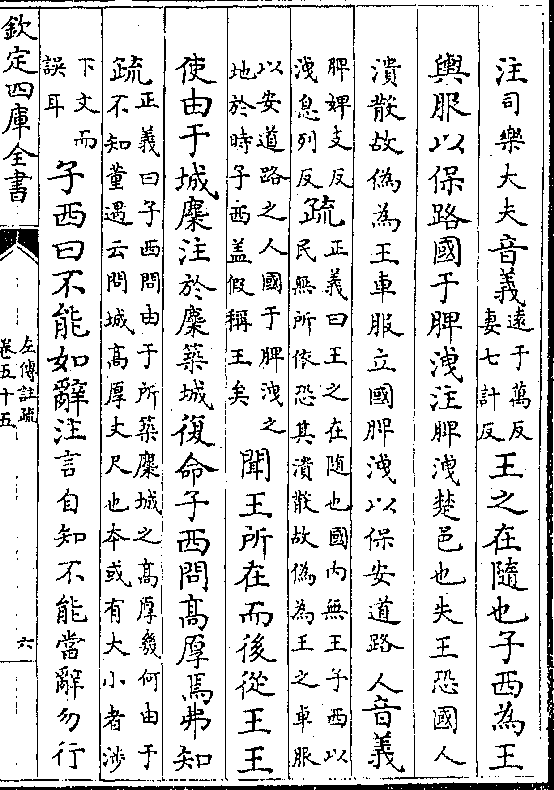 注司樂大夫音義遠于萬反
妻七計反王之在隨也子西為王
輿服以保路國于脾洩注脾洩楚邑也失王恐國人
潰散故偽為王車服立國脾洩以保安道路人音義
脾婢支反
洩息列反疏正義曰王之在隨也國内無王子西以
民無所依恐其潰散故偽為王之車服
以安道路之人國于脾洩之
地於時子西盖假稱王矣聞王所在而後從王王
使由于城麇注於麇築城復命子西問高厚焉弗知
疏正義曰子西問由于所築麇城之高厚幾何由于
不知董遇云問城高厚丈尺也本或有大小者涉
下文而
誤耳子西曰不能如辭注言自知不能當辭勿行
欽定四庫全書
左傳註疏
卷五十五
六